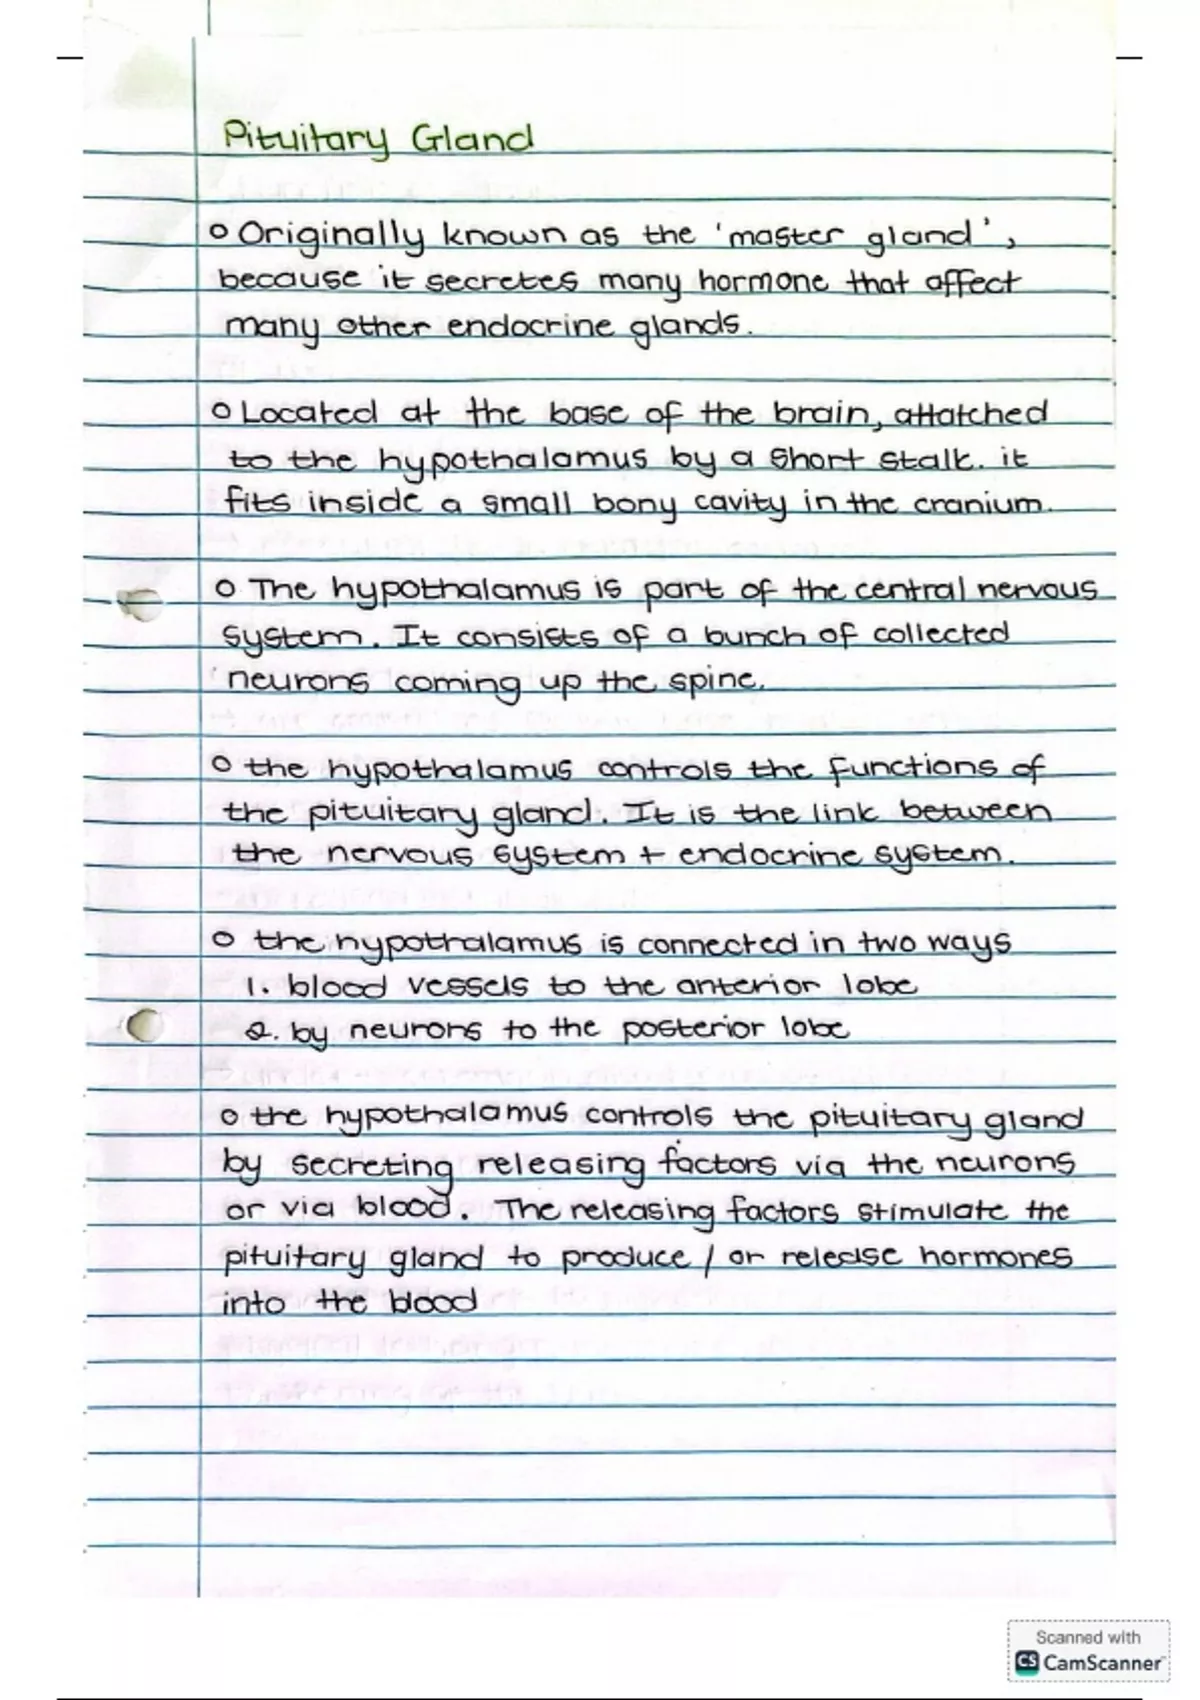 Pituitary Gland
o Originally known as the 'master gland',
because it secretes many hormone that affect
many other endocrine glands.
o Located at the base of the brain, attatched
to the hypothalamus by a short stalk. it
fits inside a small bony cavity in the cranium.
o The hypothalamus is part of the central nervous
system. It consists of a bunch of collected
neurons coming up the spine.
o the hypothalamus controls the functions of
the pituitary gland. It is the link between
the nervous system + endocrine system.
o the hypothalamus is connected in two ways
1. blood vessels to the anterior lobe
2. by neurons to the posterior lobe
o the hypothalamus controls the pituitary gland
by secreting releasing factors via the neurons
or via blood. The releasing factors stimulate the
pituitary gland to produce / or release hormones
into the blood
Scanned with
CS CamScanner